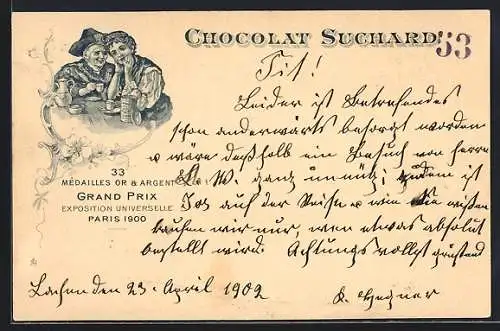 CHOCOLAT SUCHARD
53
Tit!
Leider ist Betreffendes
schon anderwärts besorgt worden
u wäre deßhalb ein Besuch von Herrn
W. ganz unnütz; zudem ist
auf der Reise u wie Sie wissen
kaufen wir nur, wen etwas absolut
bestellt wird. Achtungsvollst grüssend
33
MÉDAILLES OR & ARGENT
GRAND PRIX
EXPOSITION UNIVERSELLE
PARIS 1900
Lachen den 23. April 1902